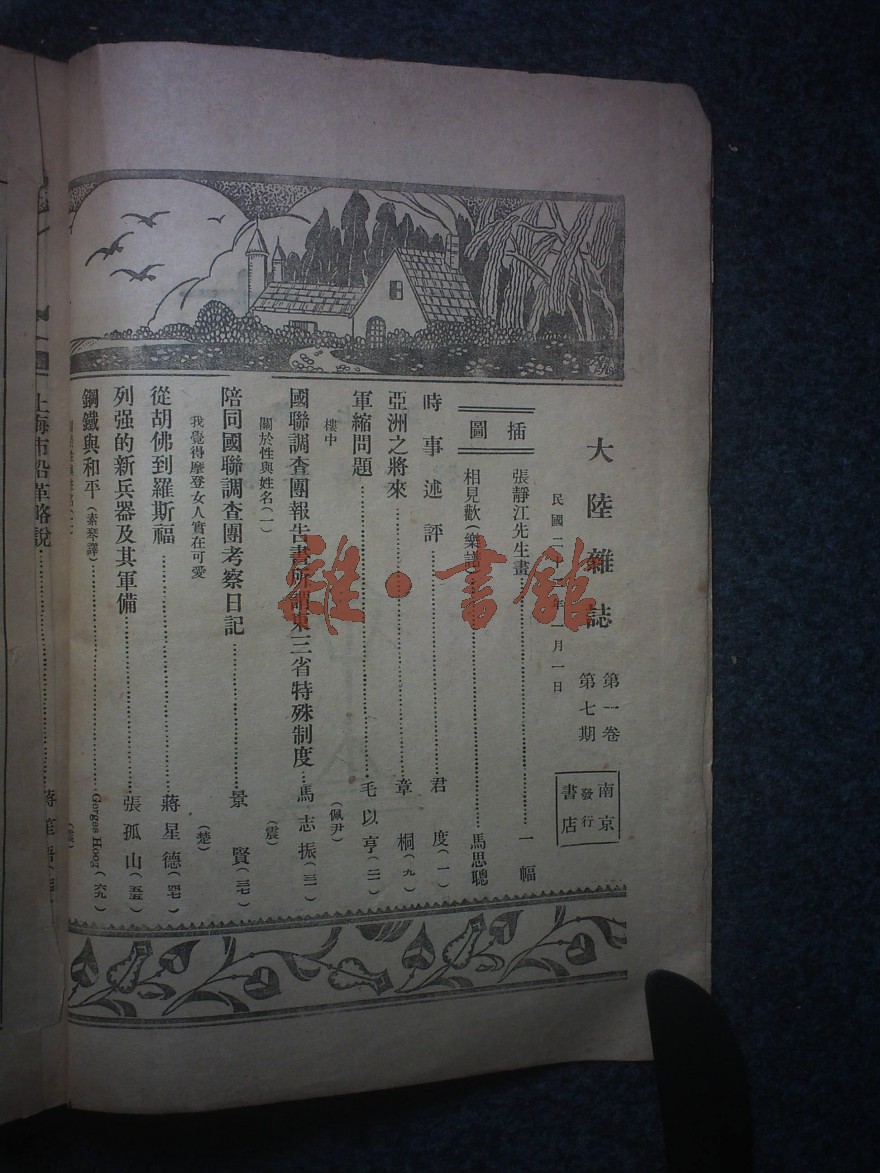 大陸雜誌
第一卷
第七期
民國二十 年一月一日
南京
發行
書店
插圖
張靜江先生畫……一幅
相見歡(樂譜)……馬思聰
時事述評……君度(一)
亞洲之將來……章桐(九)
軍縮問題……毛以亨(二一)
樓中(佩尹)
國聯調查團報告書所謂東三省特殊制度…馬志振(三一)
關於性與姓名(一)(震)
陪同國聯調查團考察日記……景賢(三七)
我覺得摩登女人實在可愛(楚)
從胡佛到羅斯福……蔣星德(四七)
列强的新兵器及其軍備……張孤山(五五)
鋼鐵與和平(素琴譯)……Gerges Hoog(六九)
上海市沿革略說……蔣
雜·書館